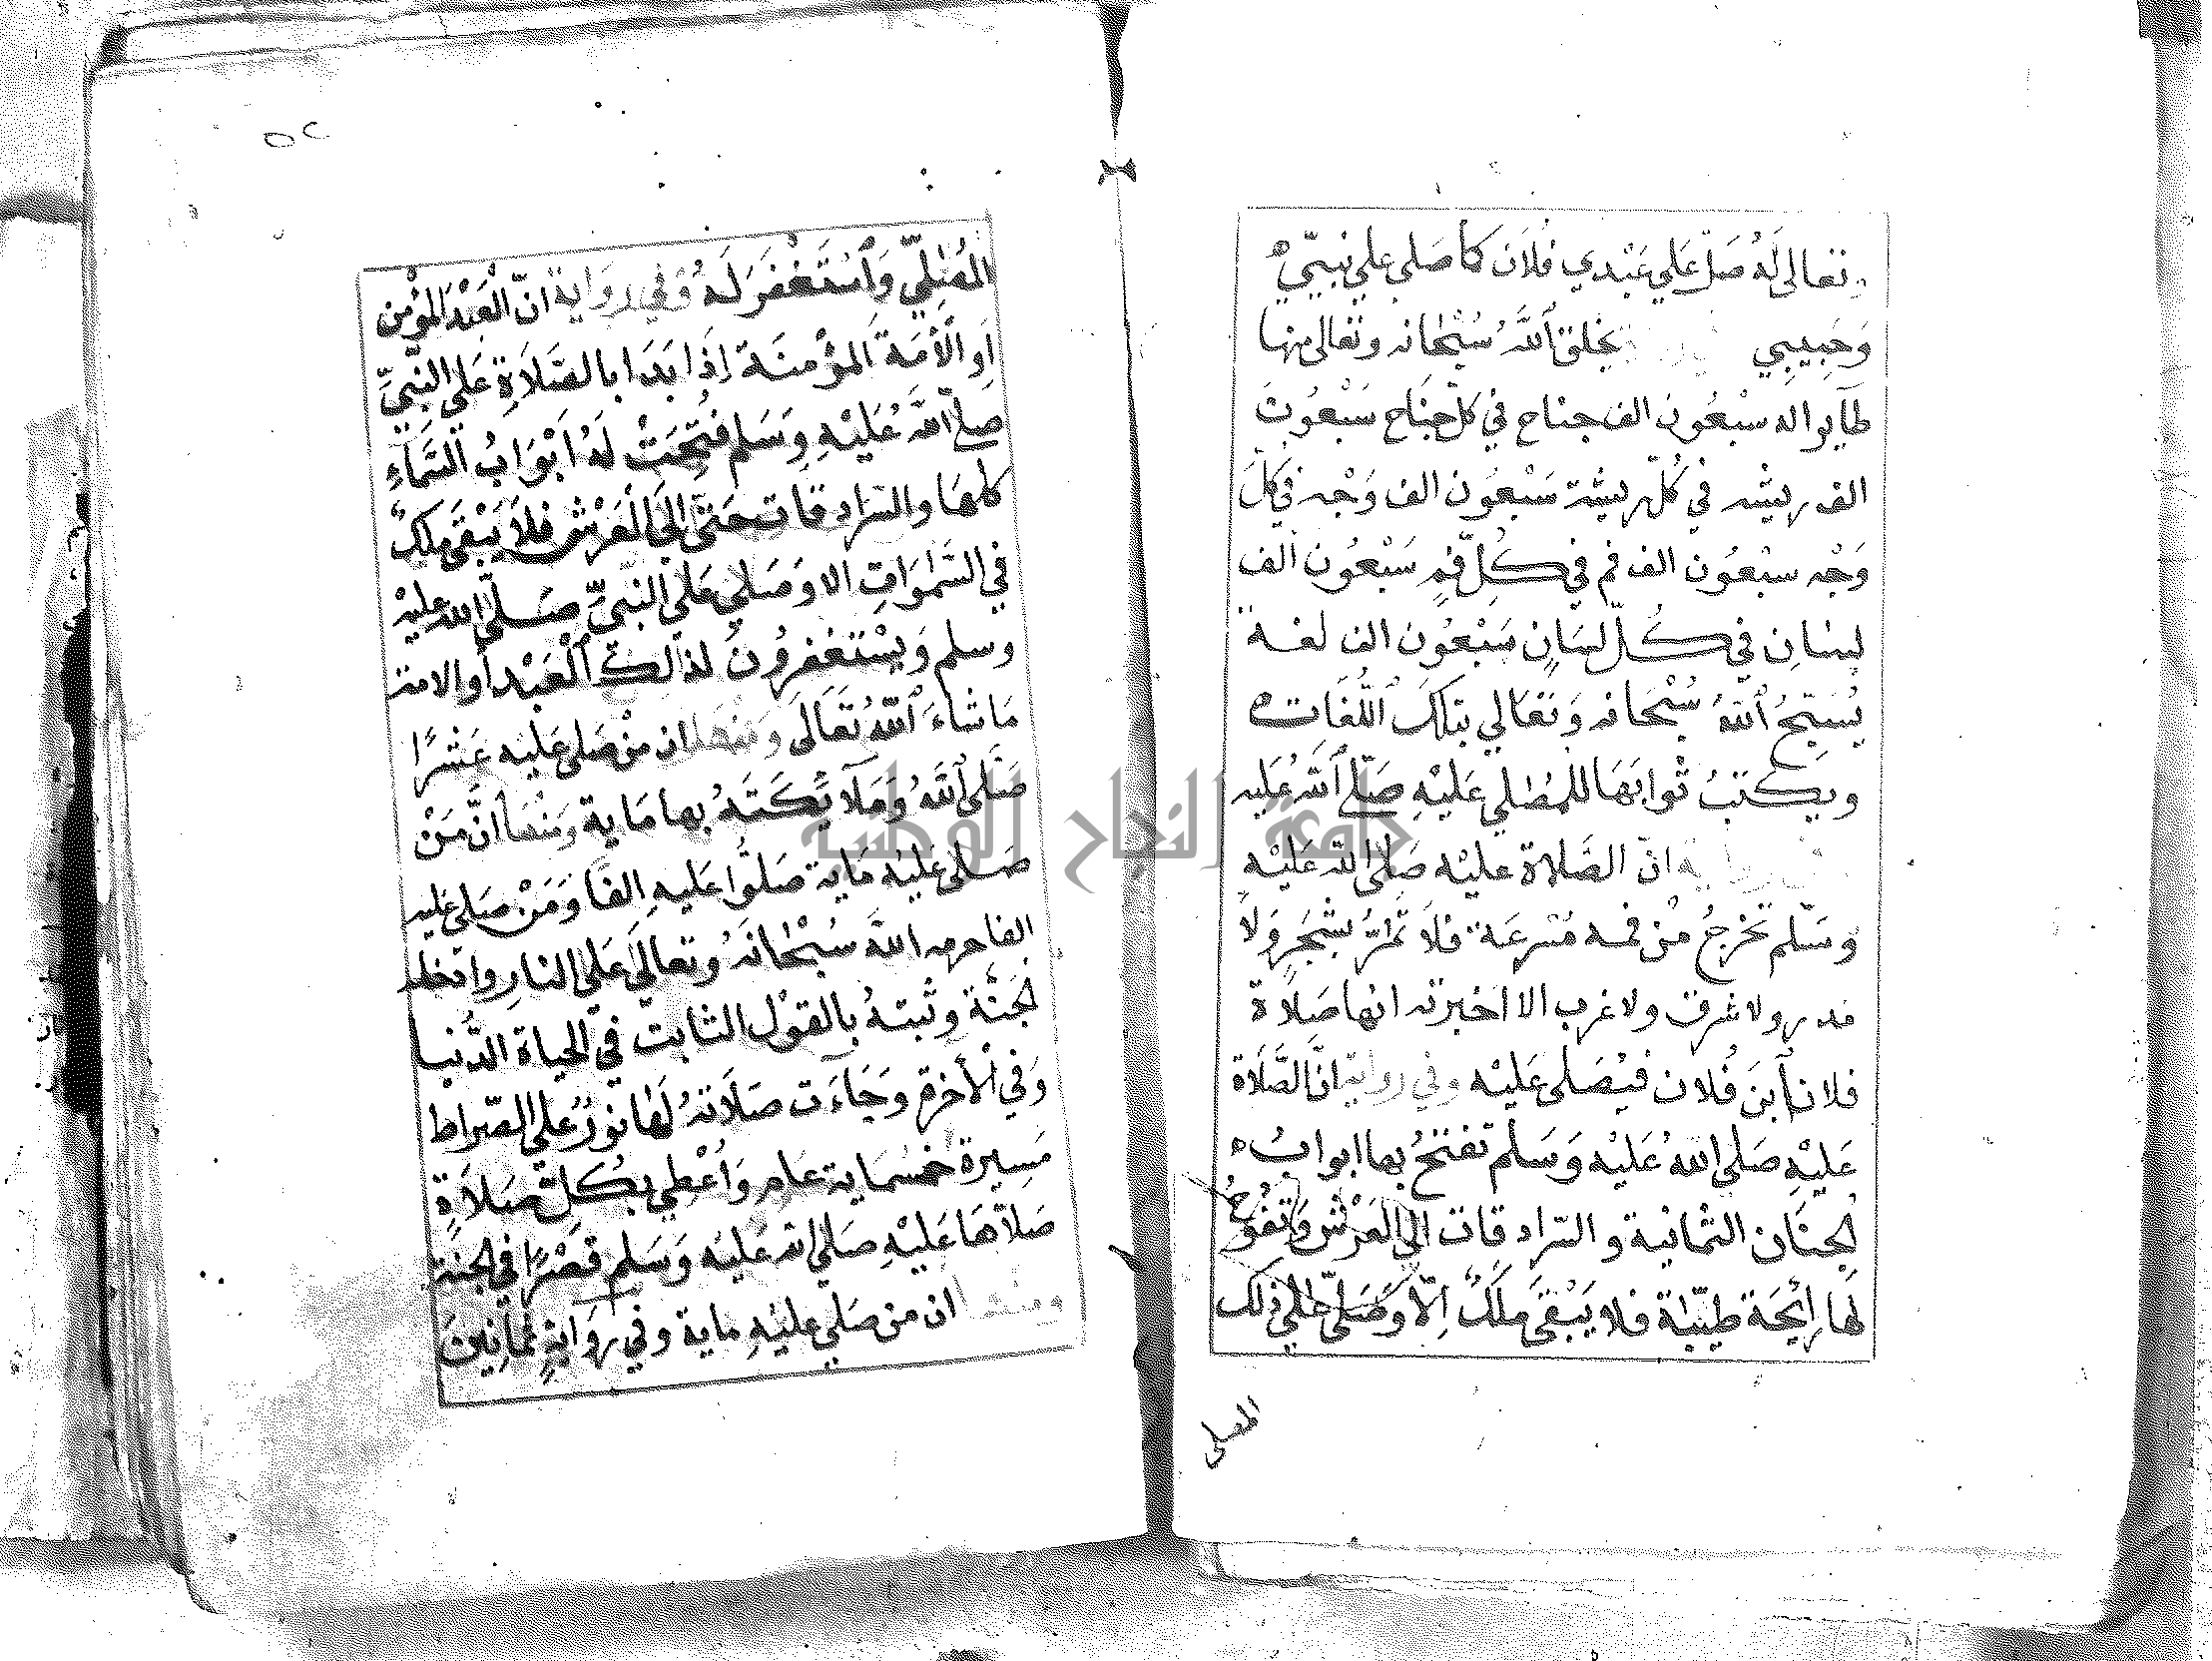 وتعالى لَهُ صَلِّ عَلي عَبْدي فُلَانَ كما صَلى عَلي نبيّي
وَحَبِيبِي يخلق ٱللَّه سُبْحٰانه وتعالى منها
طآيرا له سبْعُونَ الف جناح في كلّ جنَاح سَبْعُونَ
الف ريشه في كُلّ ريشة سَبْعُون الف وَجْه في كلّ
وَجْه سبْعُون الف فم في كُلّ فَمٍ سَبْعُون الف
لِسَانِ في كُلّ لِسَانٍ سَبْعُون الف لغة
يُسَبّحُ ٱللَّهُ سُبْحَانه وَتعَالي بتلكَ ٱللُّغَات
ويكتبُ ثوابَهَا للمُصَلي عَليْهِ صَلّى ٱللَّهُ عَليه
انّ الصَّلاة عليْه صَلىَ اللّه عَليْه
وسَلّم تخرجُ مِن فمه مُسْرعَة فلا تمرُّ بشَجَرٍ وَلَا
مدر ولا شرق ولا غرب الا اخبرته انها صَلَاة
فلان ٱبنَ فُلان فيُصَلى عَليْه وفي رواية انّ الصَّلَاة
عَليْهِ صَلىَ اللهُ عَليْه وَسَلم تفتحُ بها ابوابُ
الجنَان الثمانية والسّراد قات الي العَرْش وَتفُوحُ
لَهَا رَايحَة طيّبَة فلا يَبْقَى مَلَكٌ اِلّا وَصَلىّ علي ذلك
المصلى
٥٢
المُصَلِّي وَٱسْتَغفَرَ لَهُ وَفي رِوَاية انّ العَبْدَ المُؤمن
اوالْأمَة المؤْمنَة اِذَا بَدَا بالصَّلَاةِ عَلي النّبيِّ
صَلىّ اللَّهُ عَليْهِ وَسَلم فُتِحَتْ لَهُ اَبْوَابُ السَّمآءِ
كلهَا والسّراد قات حَتىّ الَى العَرْش فلَا يَبْقَى مَلكٌ
في السَّمٰوَاتِ الا وَصَلي عَلَي النَّبيِّ صَلىّ الله عليْه
وسلم وَيسْتَغفِرُونُ لذلكَ ٱلْعَبْد أوالامة
مَا شَاءَ ٱللَّهُ تَعَالَى وَمنْهَا ان منْ صَلى عَليْه عَشْرًا
صَلّى ٱللَّهُ وَمَلَآئِكَتهُ بها مَاية وَمنْهَا انَّ مَنْ
صَلى عَليْه مَاية صَلوُّا عَليهِ الفًا وَمَنْ صَلى عليه
الفا حرمه اللَّه سُبْحٰانَهُ وتعالىَ عَلي النارِ وادخله
الجَنَّة وَثبتهُ بالقَوْل الثابت في الحيَاة الدُّنيا
وَفي الْاخرة وَجَاءَت صَلَاتهُ لهَا نورٌ عَلي الصّراط
مَسِيرة خمسماية عَامٍ وَأعْطي بكُلّ صَلَاةٍ
صَلَّاهَا عَليْهِ صَليَ الله عَليْه وَسَلم قَصْرًا في الجنَة
ومنها ان من صَلي عليْهِ ماية وفي روَايةٍ ثمانِينَ